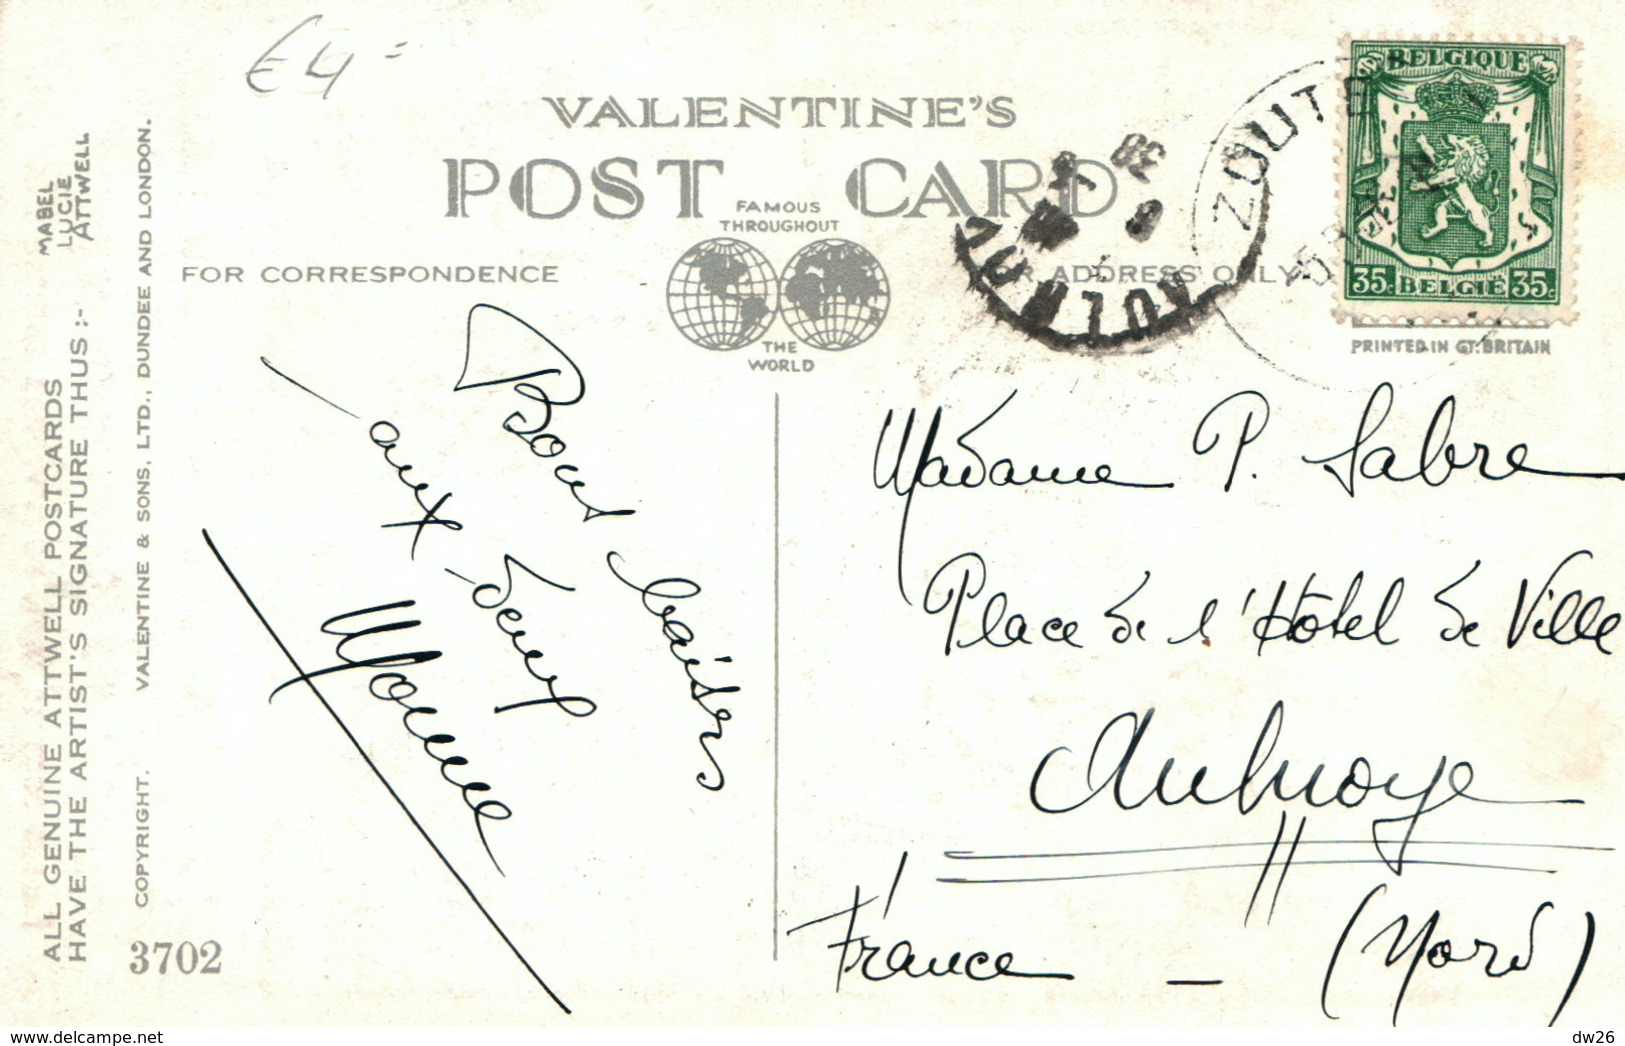 €4=
VALENTINE'S
POST CARD
FAMOUS
THROUGHOUT
THE
WORLD
FOR CORRESPONDENCE
ADDRESS ONLY
MABEL
LUCIE
ATTWELL
ALL GENUINE ATTWELL POSTCARDS
HAVE THE ARTIST'S SIGNATURE THUS :-
COPYRIGHT. VALENTINE & SONS, LTD., DUNDEE AND LONDON.
3702
BELGIQUE
35c BELGIË 35c
PRINTED IN GT. BRITAIN
ZOUTE
AULNO
38
Bons baisers
aux deux
Yvonne
Madame P. Sabre
Place de l'Hôtel de Ville
Aulnoye
France - (Nord)
http://www.delcampe.net
dw26